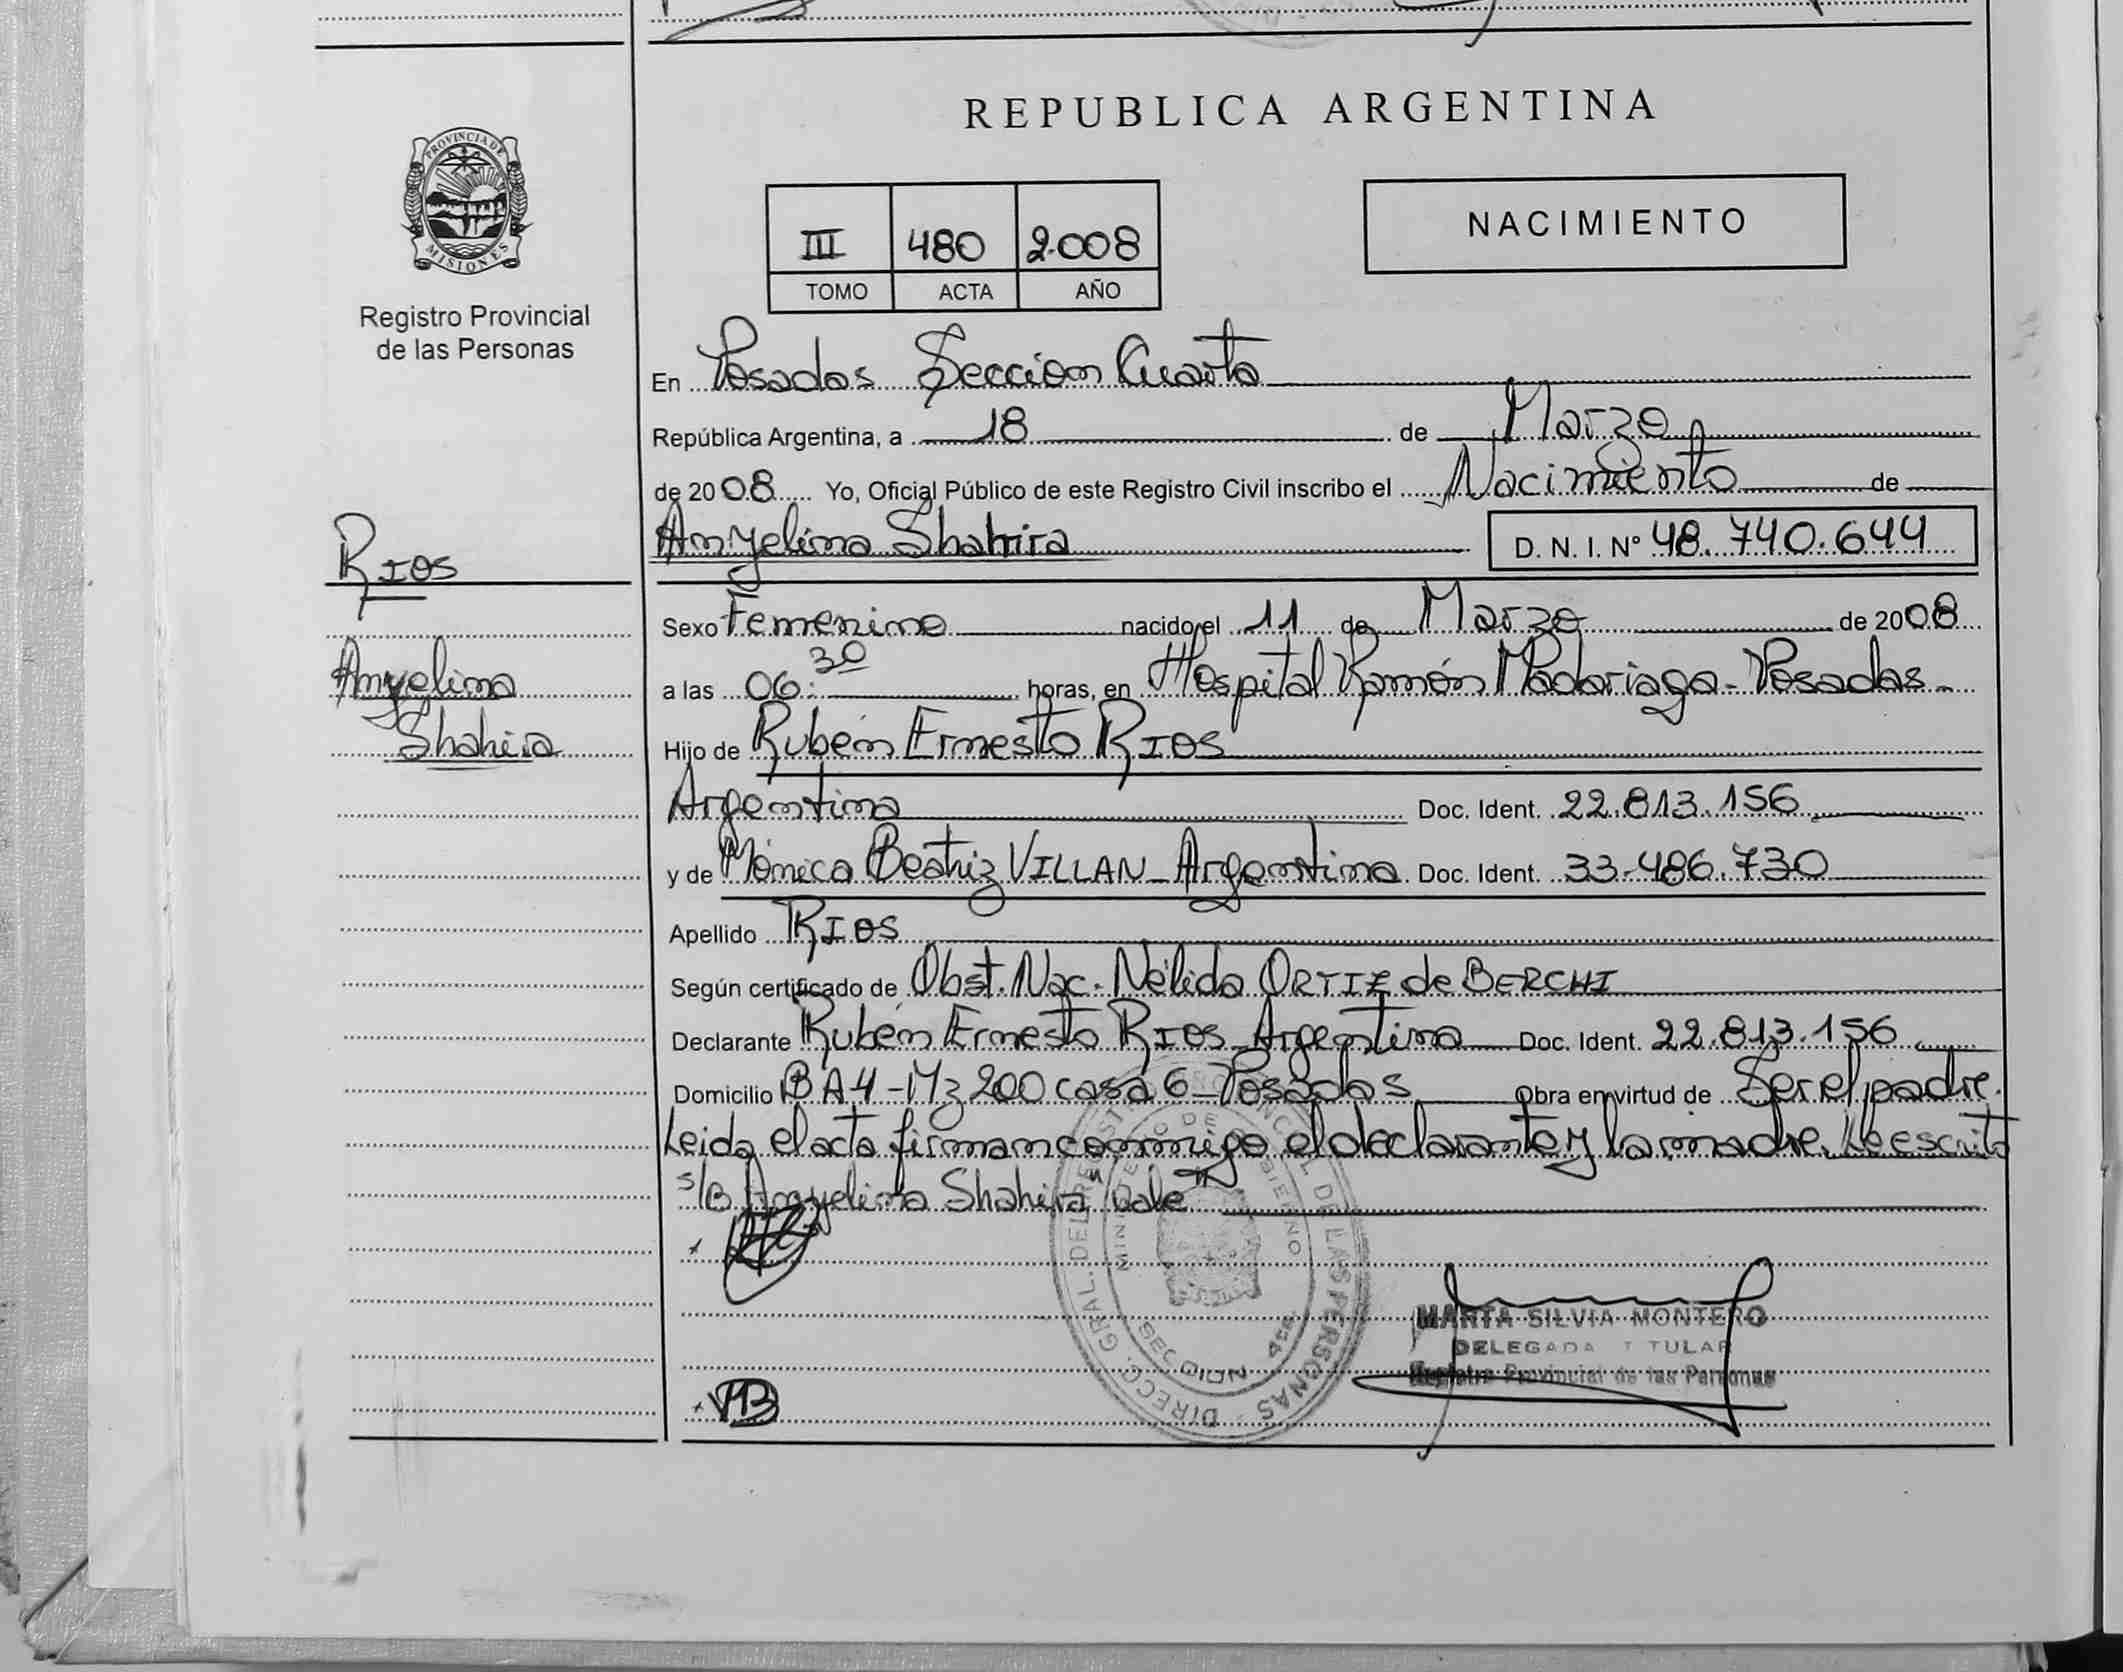 REPUBLICA ARGENTINA
PROVINCIA DE
MISIONES
Registro Provincial
de las Personas
III 480 2.008
TOMO ACTA AÑO
NACIMIENTO
En Posadas Seccion Cuarta
República Argentina, a 18 de Marzo
de 2008 Yo, Oficial Público de este Registro Civil inscribo el Nacimiento de
Anyelina Shahira D. N. I. Nº 48.740.644
RIOS
Anyelina
Shahira
Sexo Femenino nacido el 11 de Marzo de 2008
a las 06:30 horas, en Hospital Ramón Madariaga - Posadas -
Hijo de Rubén Ernesto RIOS
Argentino Doc. Ident. 22.813.156
y de Mónica Beatriz VILLAN - Argentina Doc. Ident. 33.486.730
Apellido RIOS
Según certificado de Obst. Nac. Nélida ORTIZ de BERCHI
Declarante Rubén Ernesto RIOS - Argentino Doc. Ident. 22.813.156
Domicilio BA4 - Mz 200 casa 6 - Posadas Obra en virtud de Ser el padre.
Leida el acta firman conmigo el declarante y la madre. Lo escrito
s/B "Anyelina Shahira" Vale
DIRECC. GRAL. DEL REGISTRO PROVINCIAL DE LAS PERSONAS
MINISTERIO DE GOBIERNO
SECCION 4ta.
MARTA SILVIA MONTERO
DELEGADA TITULAR
Registro Provincial de las Personas